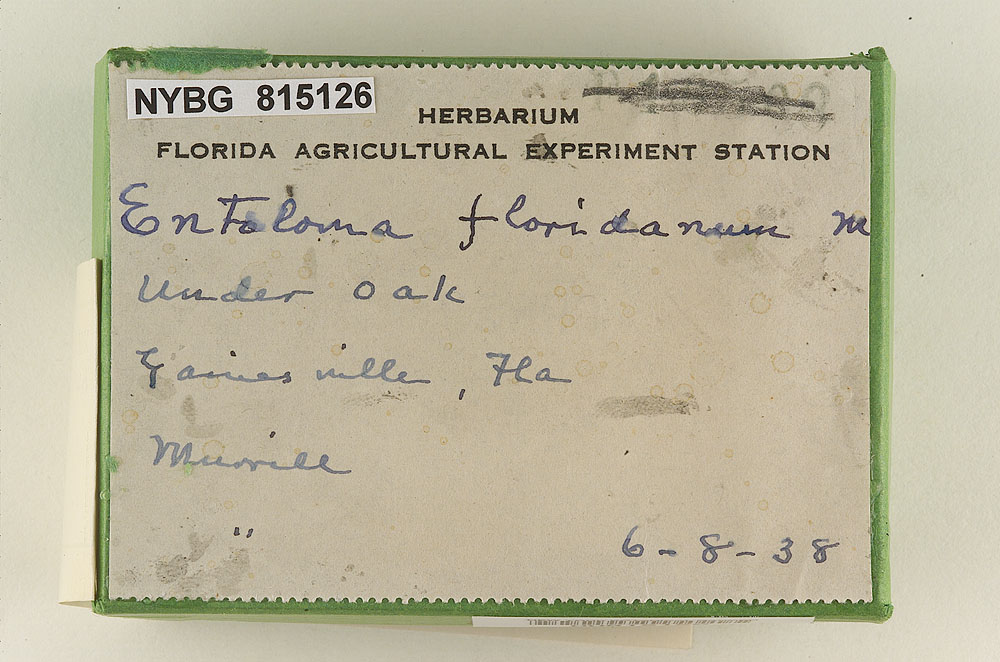 NYBG 815126
HERBARIUM
FLORIDA AGRICULTURAL EXPERIMENT STATION
Entoloma floridanum M
Under oak
Gainesville, Fla
Murrill
"
6-8-38